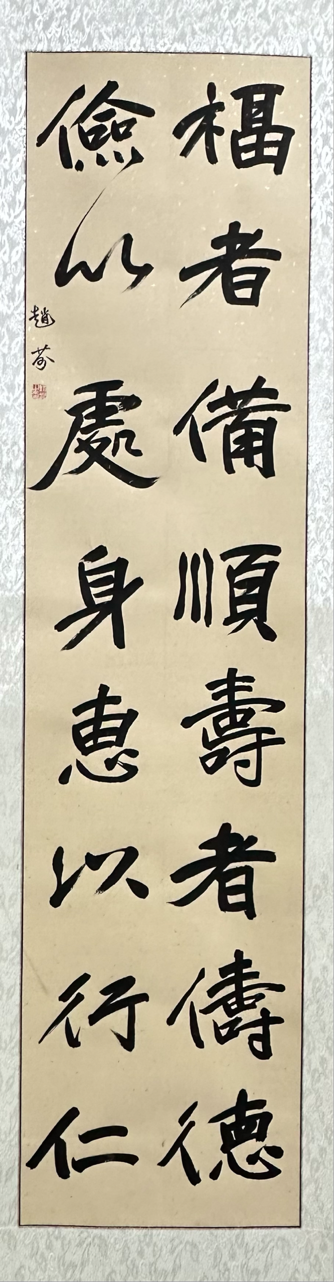 福者備順壽者儔德
儉以處身惠以行仁
趙芬